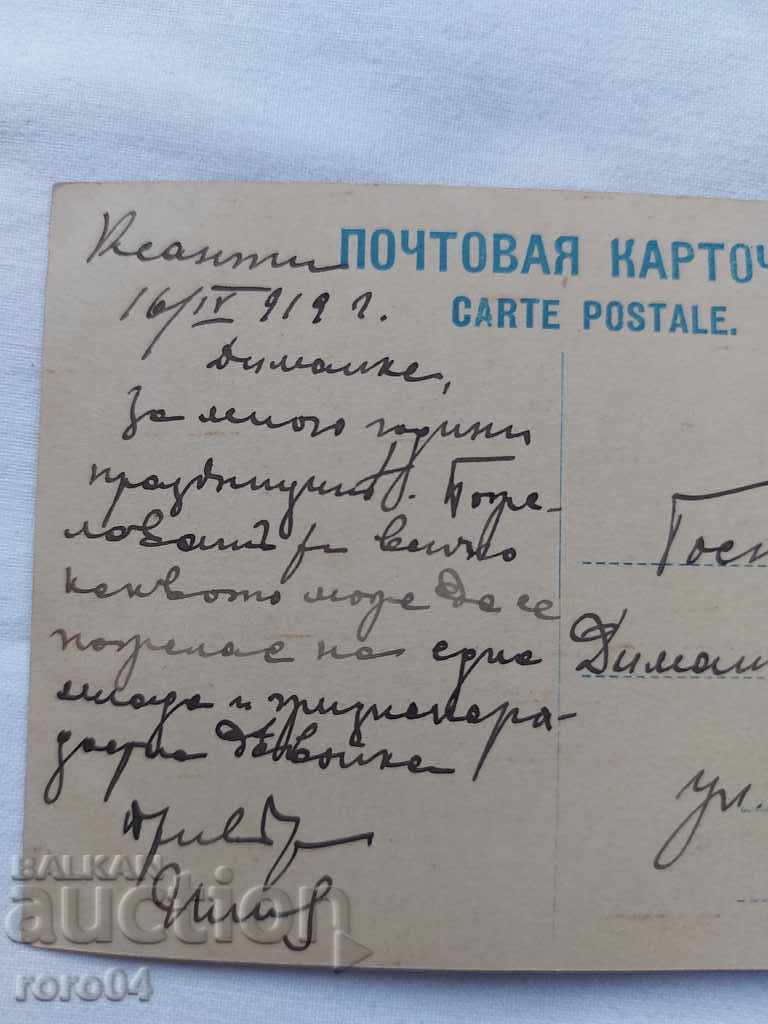 Ксанти
ПОЧТОВАЯ КАРТОЧ
16/IV 919 г.
CARTE POSTALE.
Димашке,
За много години
празницитѣ. Поже-
ловамъ ти всичко
каквото може да се
пожелае на една
млада и
девойка!
Приветъ
Госп
Димаш
ул.
BALKAN
auction
roro04